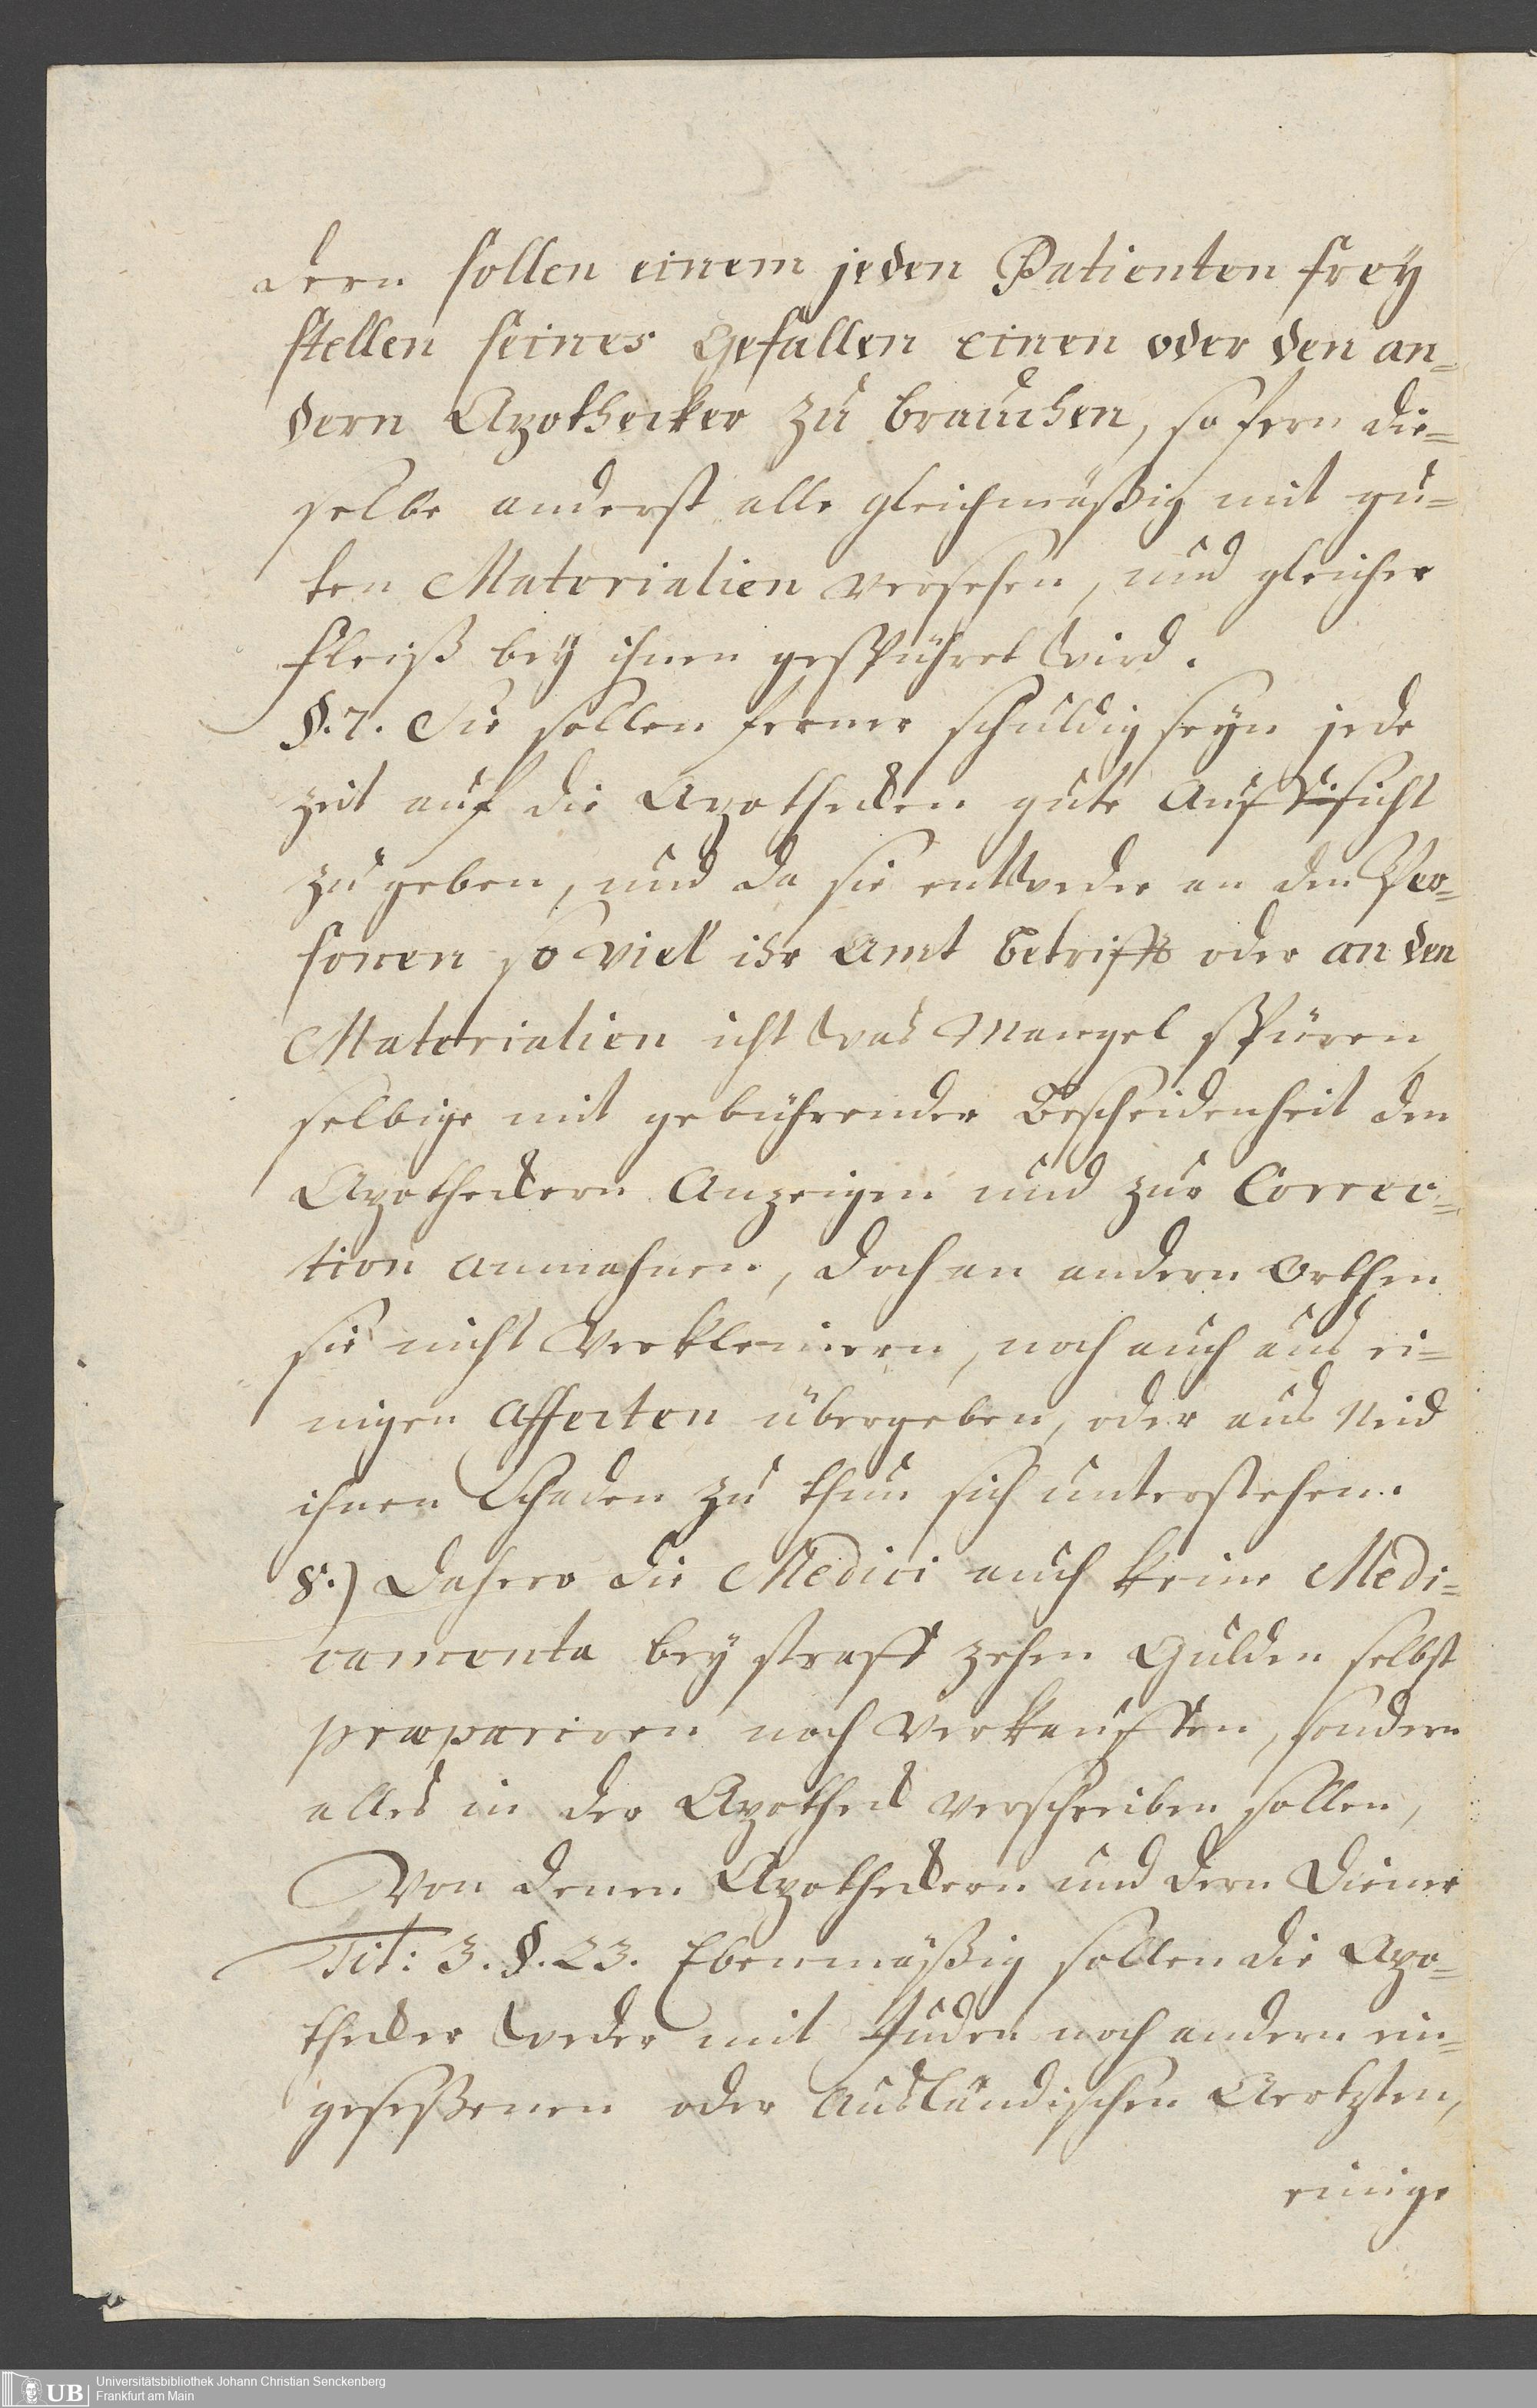 dern sollen einem jeden Patienten frey
stellen seines Gefallen einen oder den an=
dern Apothecker zu brauchen, so fern die=
selbe anderst alle gleichmäßig mit gu=
ten Materialien versehen, und gleicher
fleiß bey ihnen gespühret wird.
§. 7. Sie sollen ferner schuldig seyn jede
zeit auf die Apothecken gute Aufsicht
zu geben, und da sie entweder an den Per=
sonen so viel ihr Amt betrifft oder an den
Materialien icht was Mangel spüren,
selbige mit gebührender Bescheidenheit den
Apotheckern Anzeigen und zur Correc=
tion anmahnen, doch an andern Orthen
sie nicht Verkleinern, noch auch aus ei=
nigen Affecten übergeben, oder aus Neid
ihnen Schaden zu thun sich unterstehen.
8.) Dahero die Medici auch keine Medi=
camenta bey straff zehen Gulden selbst
præpariren noch Verkauffen, sondern
alles in der Apotheck verschreiben sollen,
Von denen Apotheckern und dern Diener
Tit: 3. §. 23. Ebenmäßig sollen die Apo=
thecker weder mit Juden noch andern ein=
gesessenen oder Ausländischen Aertzten,
einige
UB
Universitätsbibliothek Johann Christian Senckenberg
Frankfurt am Main